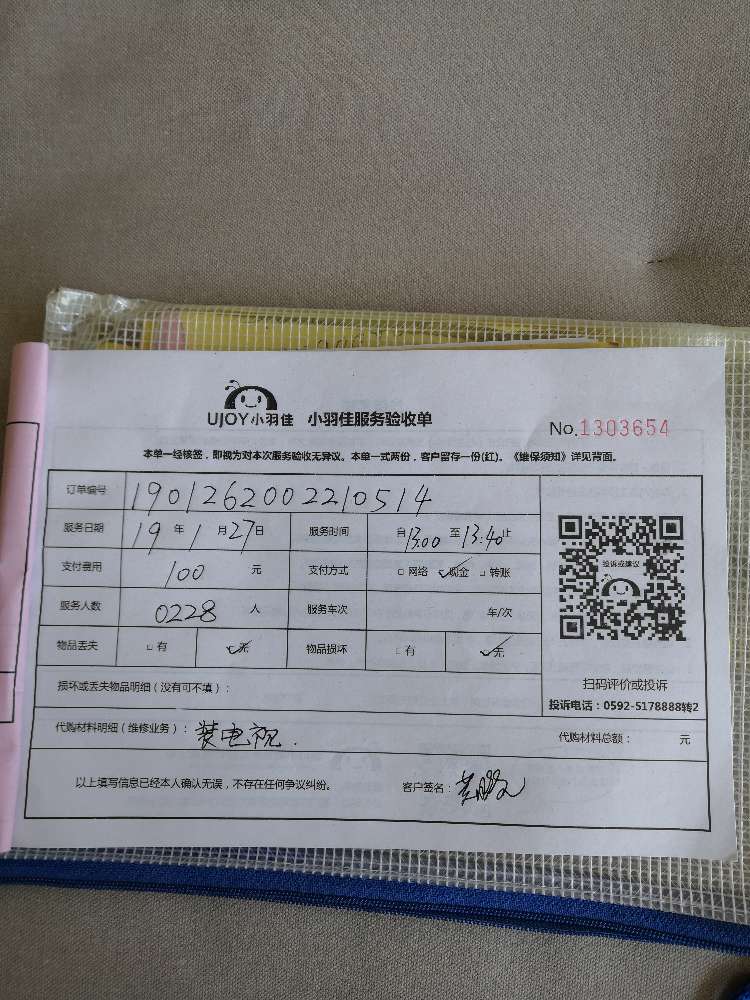 UJOY小羽佳 小羽佳服务验收单
No.1303654
本单一经核签，即视为对本次服务验收无异议。本单一式两份，客户留存一份(红)。《维保须知》详见背面。
订单编号 1901262002210514
服务日期 19年1月27日 服务时间 自13:00至13:40止
支付费用 100 元 支付方式 □网络 ✓现金 □转账
服务人数 0228 人 服务车次 车/次
物品丢失 □有 ✓无 物品损坏 □有 ✓无
损坏或丢失物品明细（没有可不填）：
代购材料明细（维修业务）：装电视. 代购材料总额： 元
以上填写信息已经本人确认无误，不存在任何争议纠纷。 客户签名：
投诉或建议
扫码评价或投诉
投诉电话：0592-5178888转2